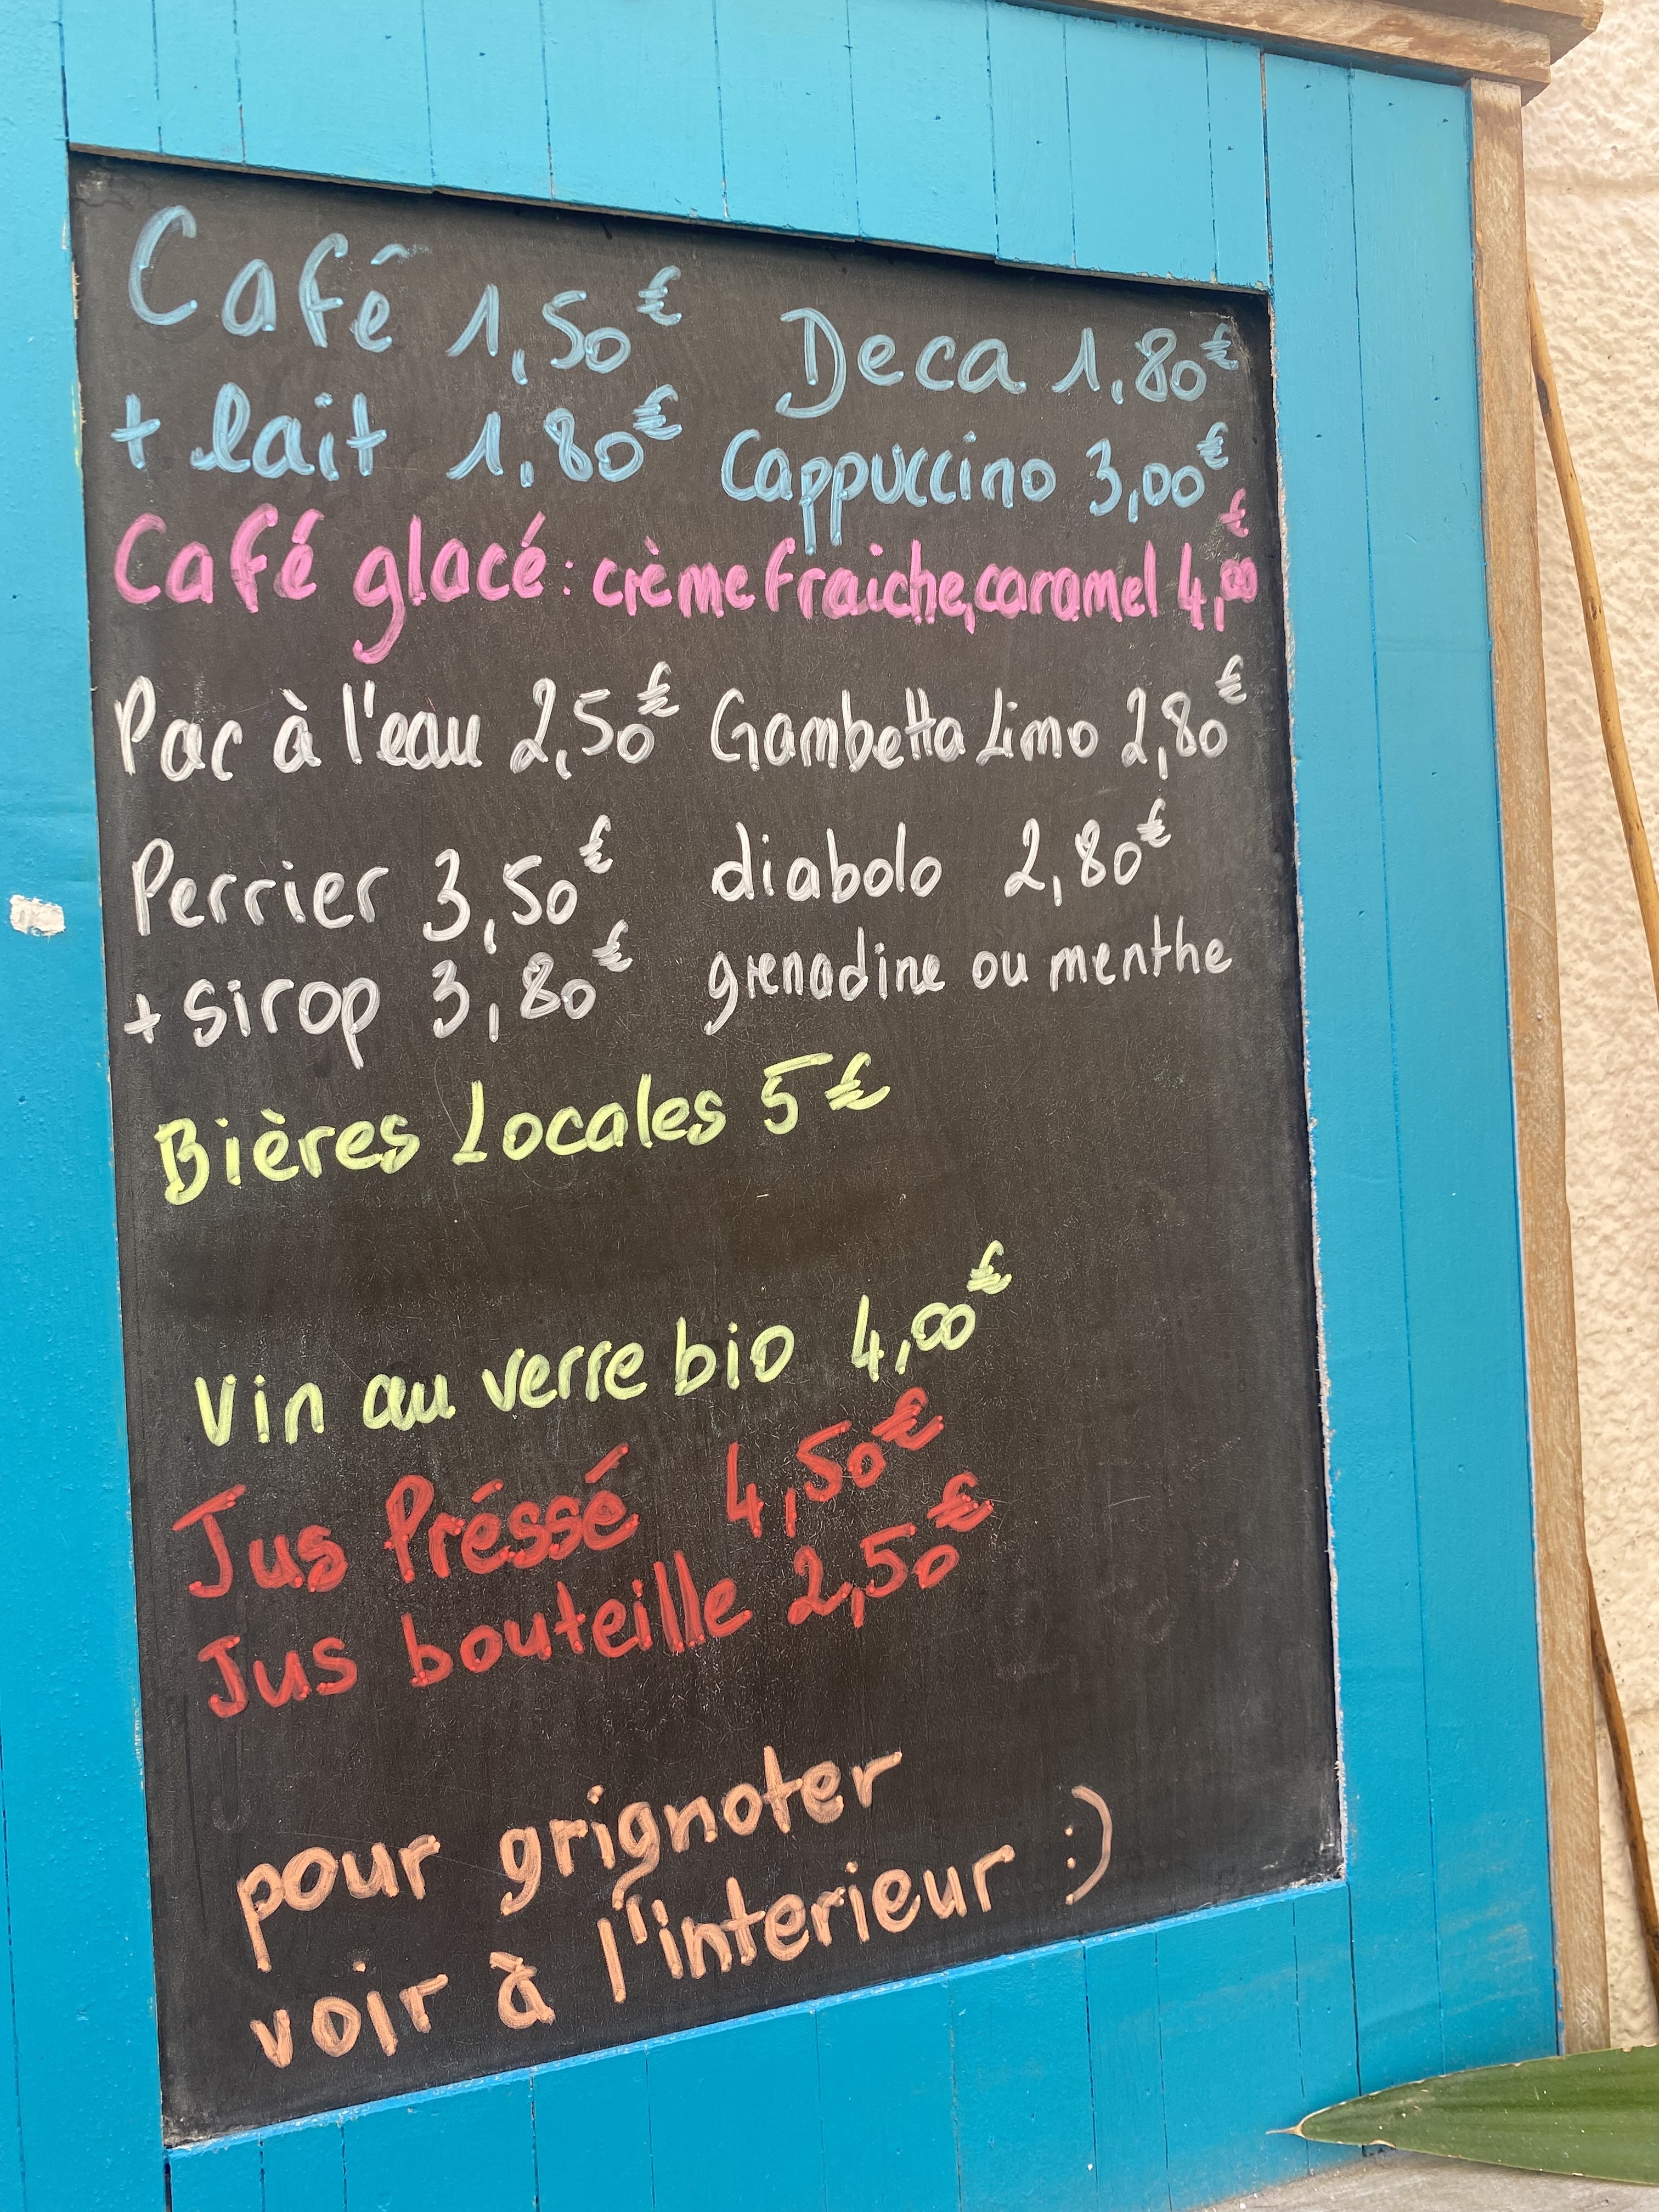 Café 1,50€ Deca 1,80€
+ lait 1,80€ Cappuccino 3,00€
Café glacé : crème fraiche, caramel 4,00€
Pac à l'eau 2,50€ Gambetta Limo 2,80€
Perrier 3,50€ diabolo 2,80€
+ sirop 3,80€ grenadine ou menthe
Bières Locales 5€
Vin au verre bio 4,00€
Jus Préssé 4,50€
Jus bouteille 2,50€
pour grignoter
voir à l'interieur :)